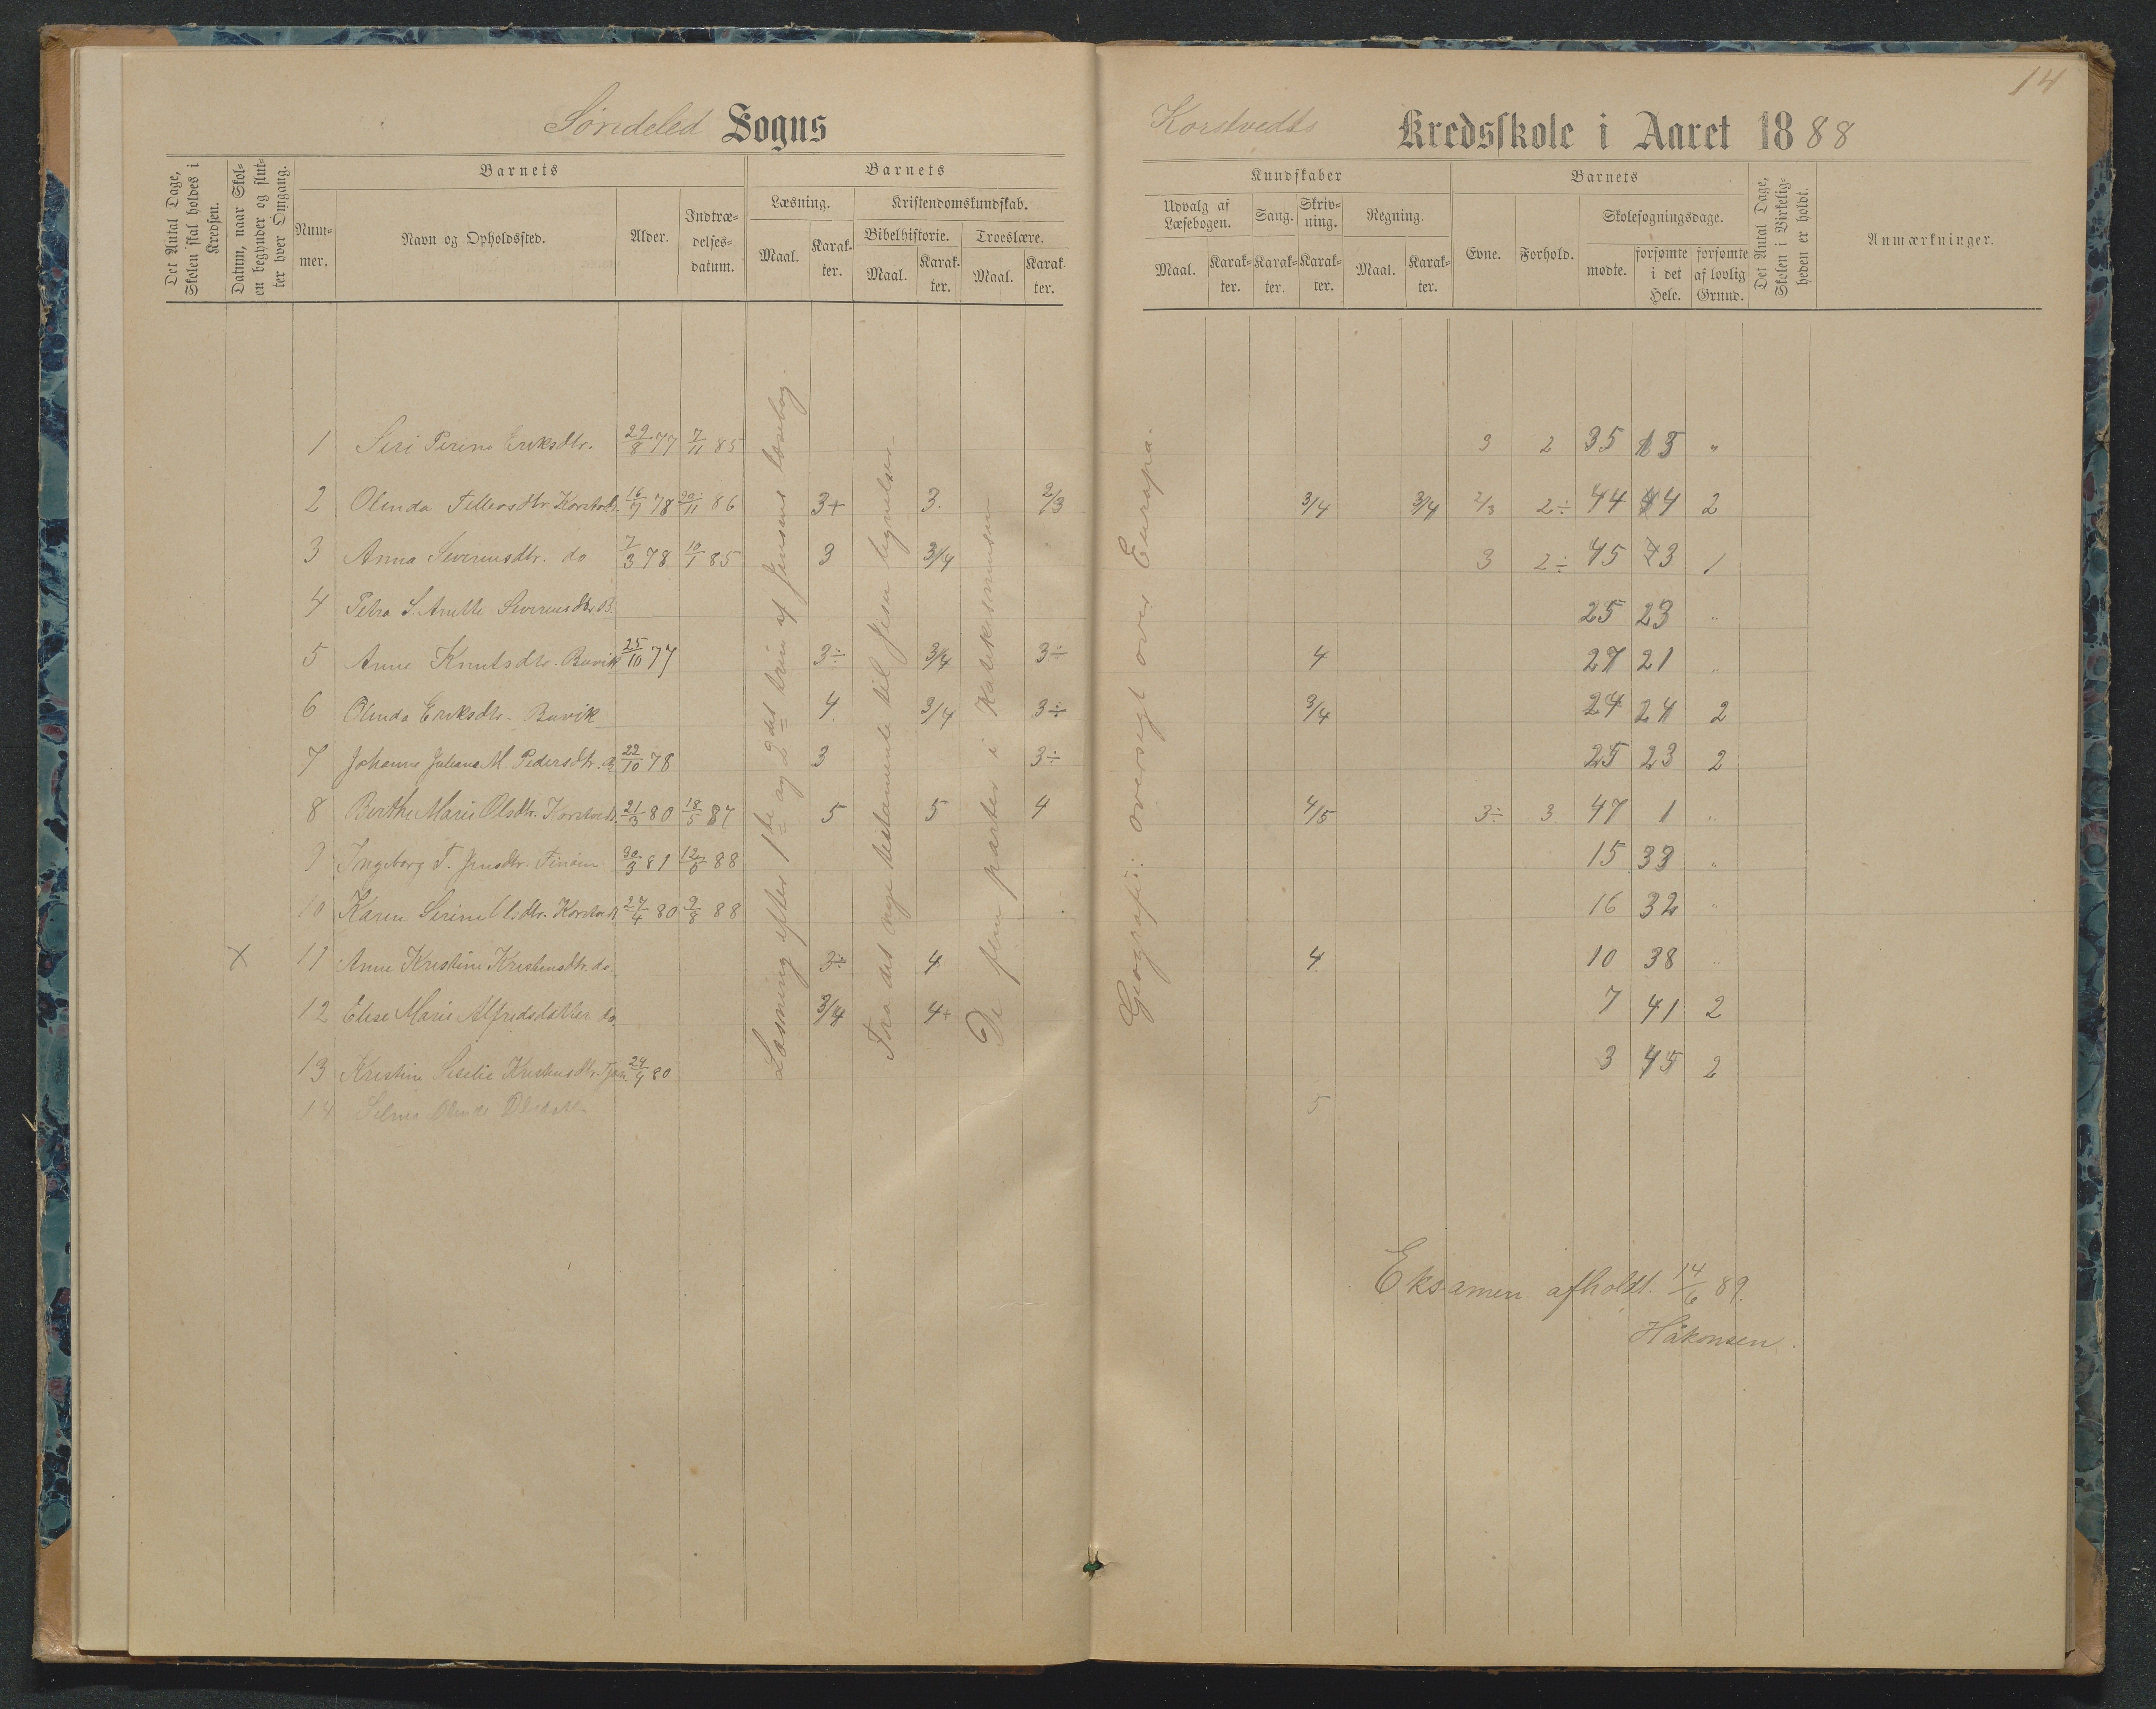 14
Söndeled Sogns
Korstvedts Kredsskole i Aaret 1888
Det Antal Dage, Skolen skal holdes i Kredsen.
Datum, naar Skolen begynder og slutter hver Omgang.
Barnets
Nummer.
Navn og Opholdssted.
Alder.
Indtrædelsesdatum.
Barnets
Læsning.
Maal.
Karakter.
Kristendomskundskab.
Bibelhistorie.
Maal.
Karakter.
Troeslære.
Maal.
Karakter.
Kundskaber
Udvalg af Læsebogen.
Maal.
Karakter.
Sang.
Karakter.
Skrivning.
Karakter.
Regning.
Maal.
Karakter.
Barnets
Evne.
Forhold.
Skolesøgningsdage.
mødte.
forsømte i det Hele.
forsømte af lovlig Grund.
Det Antal Dage, Skolen i Virkeligheden er holdt.
Anmærkninger.
1 Siri Perine Eriksdtr. 29/8 77 7/11 85 3 2 35 13 "
2 Olinda Tellersdtr Korstvedt. 16/7 78 /11 86 3+ 3. 2/3 3/4 3/4 2/3 2÷ 44 4 2
3 Anna Severinsdtr. do 7/3 78 10/1 85 3 3/4 3 2÷ 45 3 1
4 Petra S. Anette Severinsdtr B. 25 23 "
5 Anne Knutsdtr. Buvik 25/10 77 3÷ 3/4 3÷ 4 27 21 "
6 Olinda Eriksdtr. Buvik 4 3/4 3÷ 3/4 24 24 2
7 Johanne Juliane M. Pedersdtr. 22/10 78 3 3÷ 25 23 2
8 Berthe Marie Olsdtr. Korstvedt. 21/3 80 18/5 87 5 5 4 4/5 3÷ 3 47 1 "
9 Ingeborg T. Jensdtr. 30/3 81 12/5 88 15 33 "
10 Karen Serine Olsdtr. Korstvedt 27/4 80 9/8 88 16 32 "
x 11 Anne Kristine Kristensdtr. do 3÷ 4 4 10 38 "
12 Elise Marie Alfredsdatter do 3/4 4+ 7 41 2
13 Kristine Kristensdtr. 29/4 80 3 45 2
14 Selma 5
Læsning efter 1ste og 2det trin af Jensens læsebog.
Fra det nye testamente til Jesu lignelser
De fem parter i Katekismusen
Geografi: oversigt over Europa.
Eksamen afholdt 14/6 89.
Håkonsen.